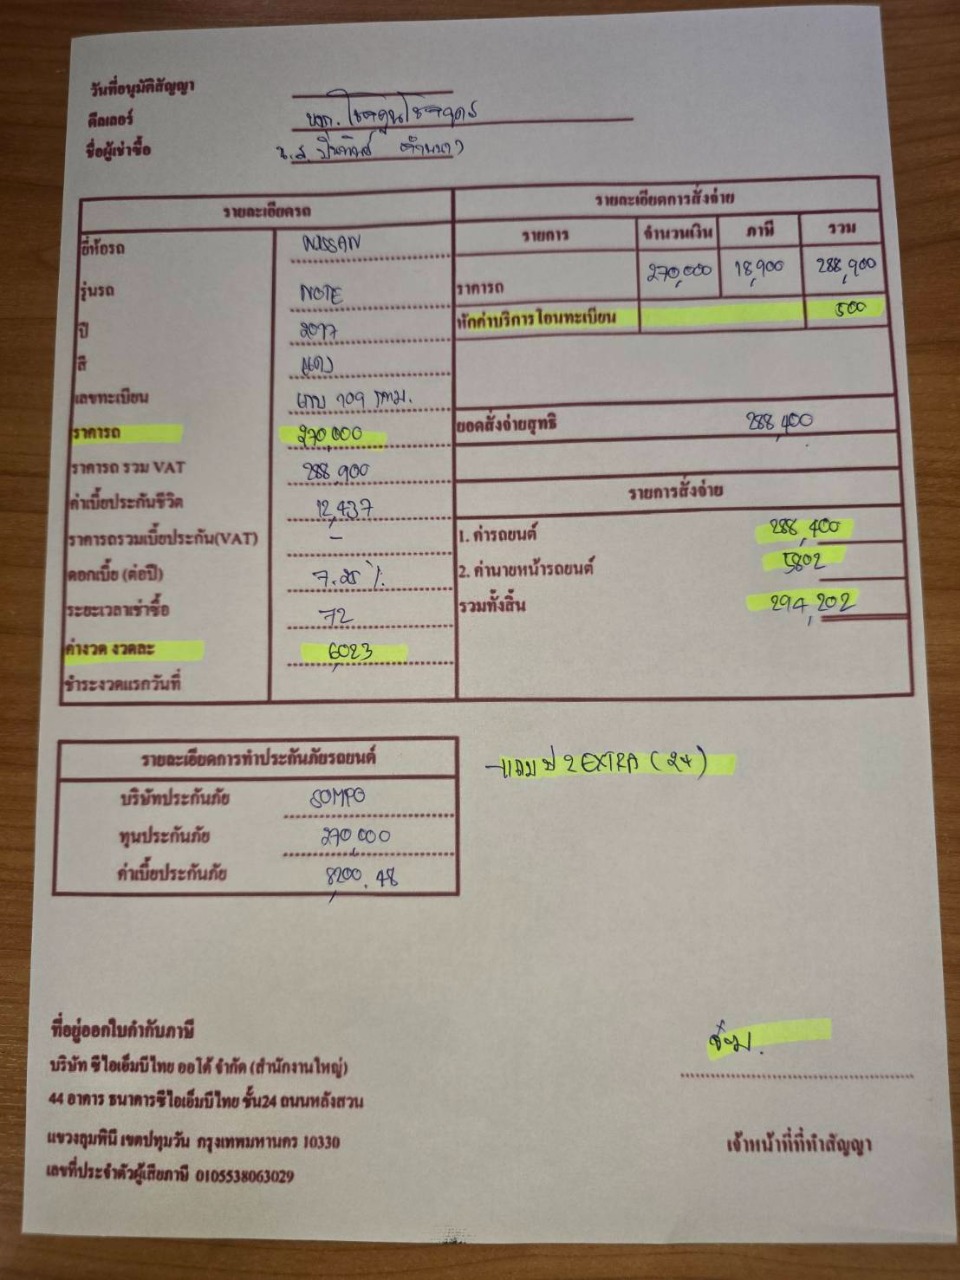 วันที่อนุมัติสัญญา
ดีลเลอร์
ชื่อผู้เช่าซื้อ น.ส.
รายละเอียดรถ
ยี่ห้อรถ NISSAN
รุ่นรถ NOTE
ปี 2017
สี แดง
เลขทะเบียน 109 กทม.
ราคารถ 270,000
ราคารถ รวม VAT 288,900
ค่าเบี้ยประกันชีวิต 12,437
ราคารถรวมเบี้ยประกัน(VAT) -
ดอกเบี้ย (ต่อปี) 7.25 %
ระยะเวลาเช่าซื้อ 72
ค่างวด งวดละ 6,023
ชำระงวดแรกวันที่
รายละเอียดการสั่งจ่าย
รายการ จำนวนเงิน ภาษี รวม
ราคารถ 270,000 18,900 288,900
หักค่าบริการโอนทะเบียน 500
ยอดสั่งจ่ายสุทธิ 288,400
รายการสั่งจ่าย
1. ค่ารถยนต์ 288,400
2. ค่านายหน้ารถยนต์ 5802
รวมทั้งสิ้น 294,202
รายละเอียดการทำประกันภัยรถยนต์
บริษัทประกันภัย SOMPO
ทุนประกันภัย 270,000
ค่าเบี้ยประกันภัย 8,200.48
-แถม ป 2 EXTRA (2+)
ที่อยู่ออกใบกำกับภาษี
บริษัท ซีไอเอ็มบีไทย ออโต้ จำกัด (สำนักงานใหญ่)
44 อาคาร ธนาคารซีไอเอ็มบีไทย ชั้น24 ถนนหลังสวน
แขวงลุมพินี เขตปทุมวัน กรุงเทพมหานคร 10330
เลขที่ประจำตัวผู้เสียภาษี 0105538063029
เจ้าหน้าที่ที่ทำสัญญา